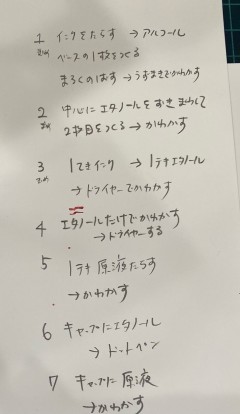 1 インクをたらす → アルコール
まい ベースの1枚をつくる
まるくのばす → うずまきでかわかす
2 中心にエタノールをおき まわして
まい 2枚目をつくる → かわかす
3 1てきインク → 1テキエタノール
まい → ドライヤーでかわかす
4 エタノールだけでかわかす
→ ドライヤーする
5 1テキ原液たらす
→ かわかす
6 キャップにエタノール
→ ドットペン
7 キャップに原液
→ かわかす